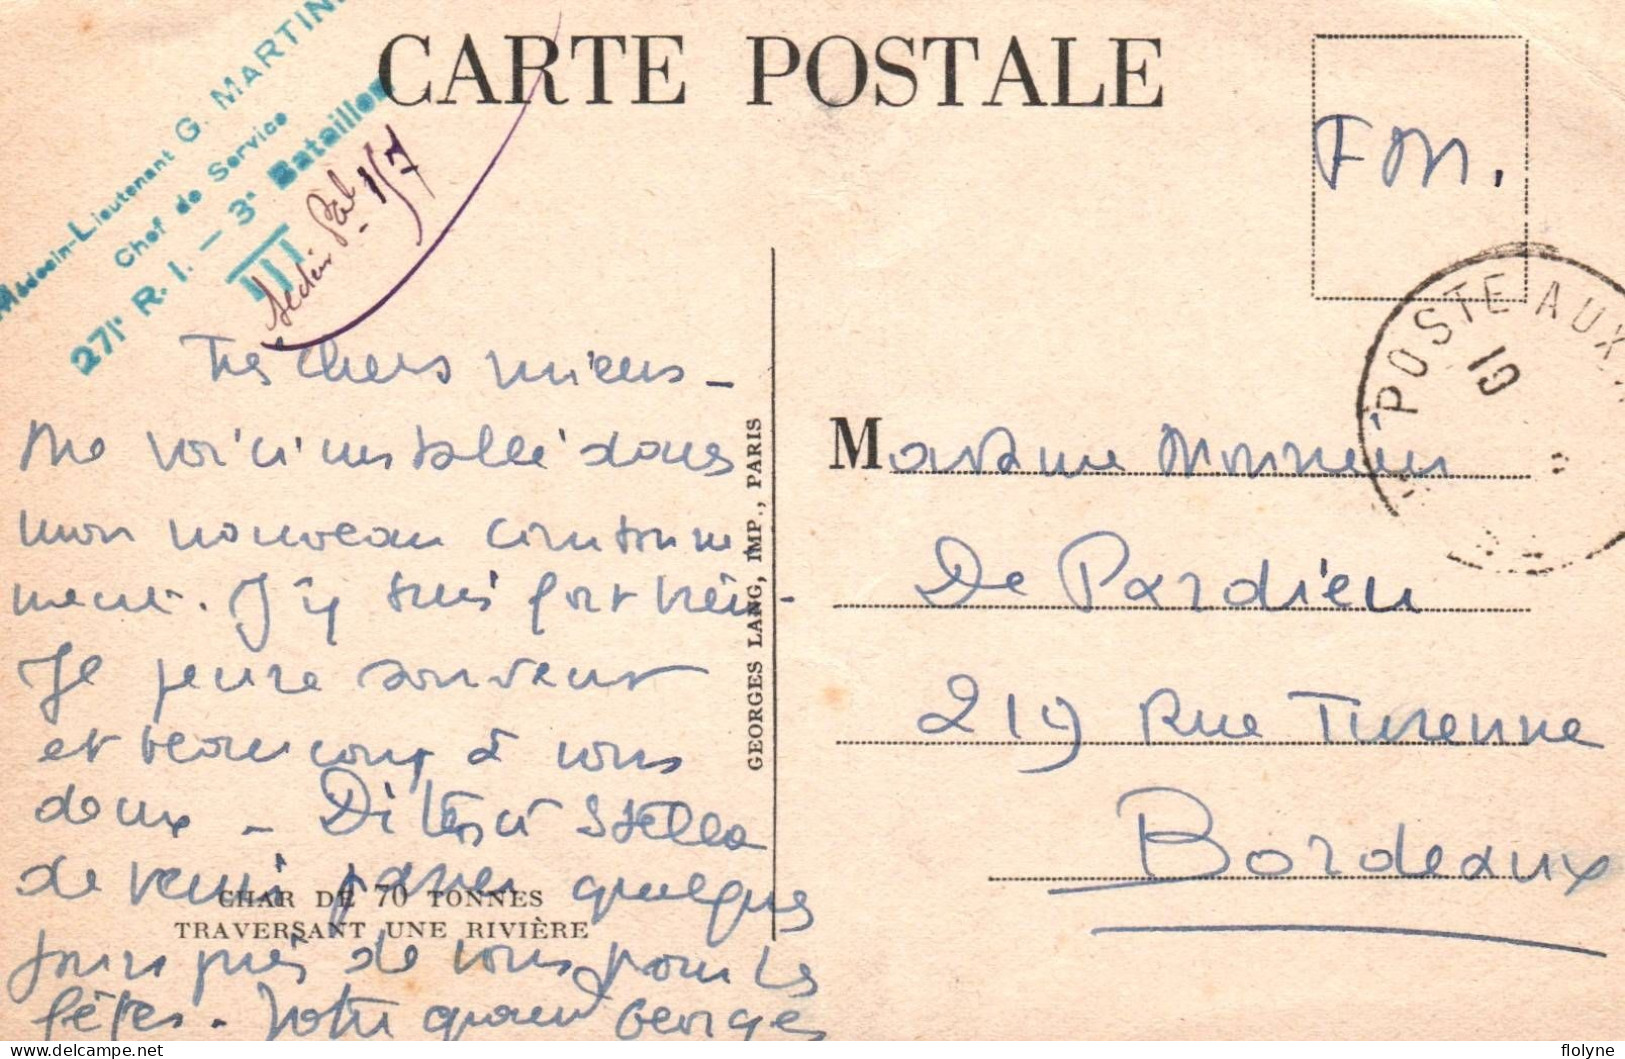 CARTE POSTALE
Médecin-Lieutenant G. MARTIN
Chef de Service
271e R. I. — 3e Bataillon
III
F M.
POSTE AUX
19
Très chers miens –
Me voici installé dans
mon nouveau cantonne
ment. J'y suis fort bien –
Je pense souvent
et beaucoup à vous
deux – Dites à Stella
de venir passer quelques
jours près de vous pour les
fêtes. Votre grand Georges
CHAR DE 70 TONNES
TRAVERSANT UNE RIVIÈRE
GEORGES LANG, IMP., PARIS
Madame
De Pardieu
219 Rue Turenne
Bordeaux
flolyne